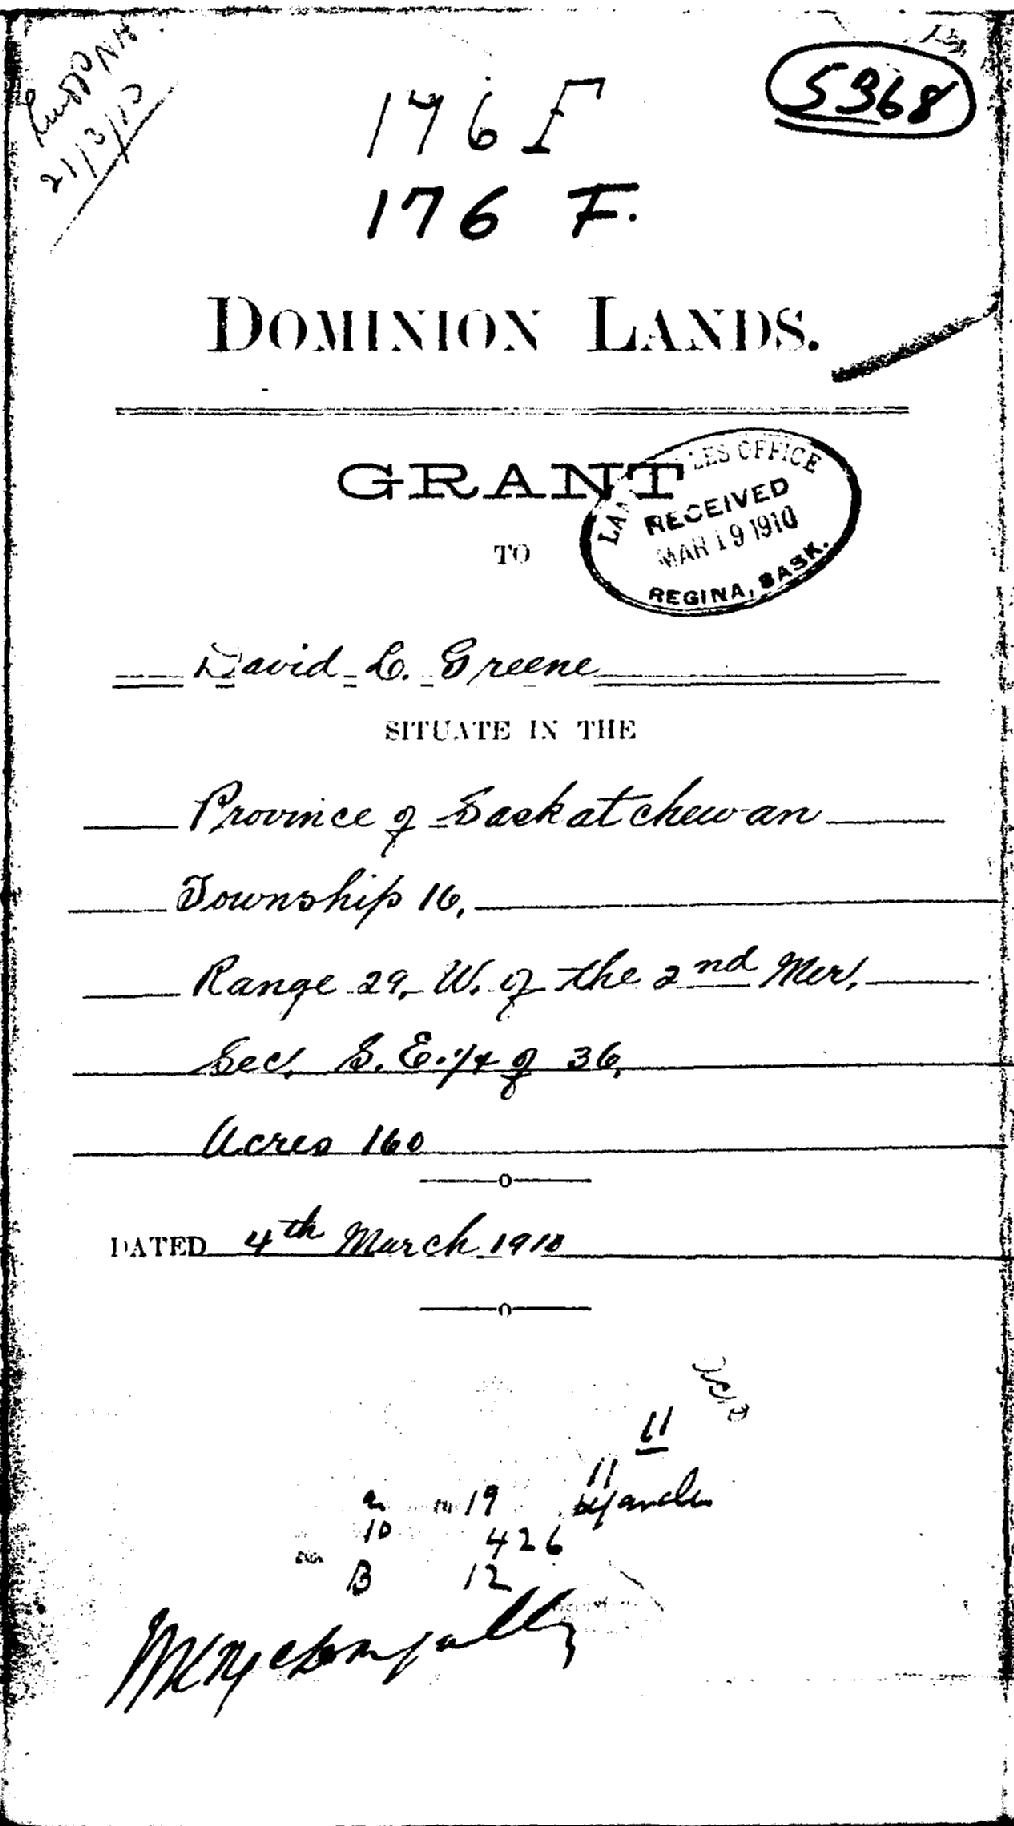 21/3/10
5368
176 F
176 F.
DOMINION LANDS.
GRANT
LAND TITLES OFFICE
RECEIVED
MAR 19 1910
REGINA, SASK.
TO
David L. Greene
SITUATE IN THE
Province of Saskatchewan
Township 16,
Range 29, W. of the 2nd Mer.
Sec. S.E. 1/4 of 36,
Acres 160
DATED 4th March 1910
11
11
19
10 426
B 12